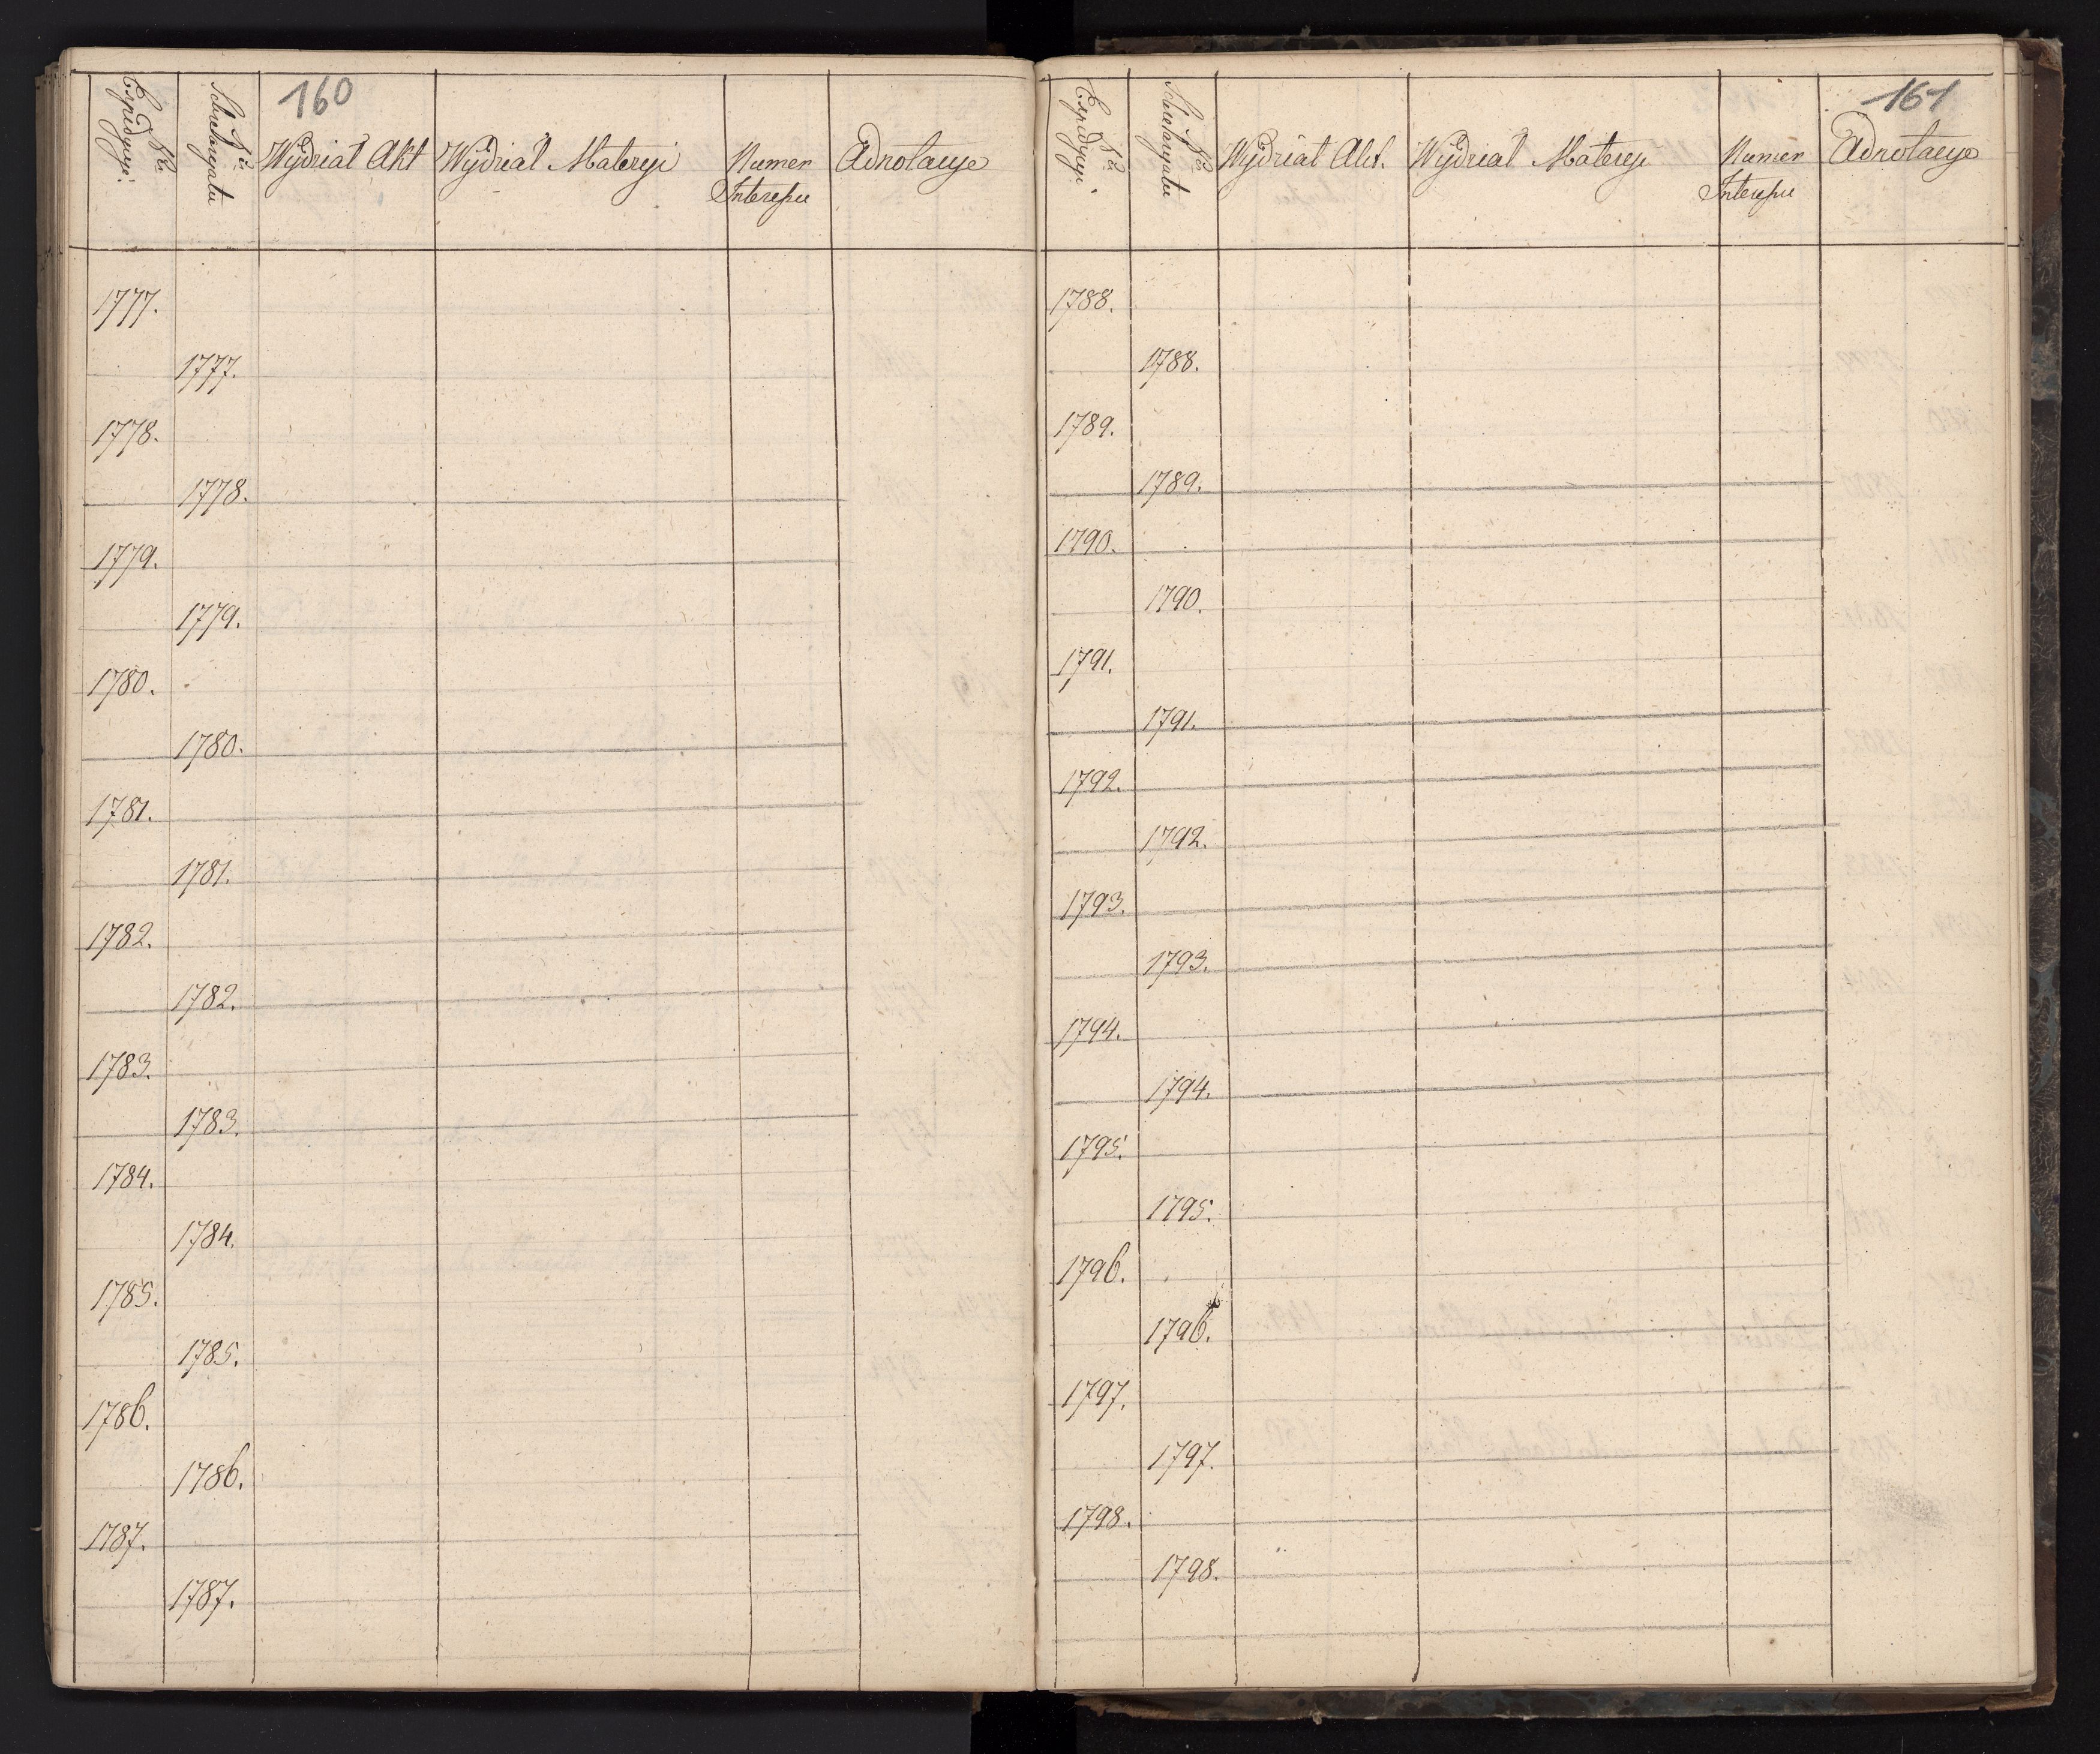 160
No Expedycyi.
No Sekretaryatu
Wydział Akt
Wydział Materyi
Numer
Interessu
Adnotacye
1777.
1777.
1778.
1778.
1779.
1779.
1780.
1780.
1781.
1781.
1782.
1782.
1783.
1783.
1784.
1784.
1785.
1785.
1786.
1786.
1787.
1787.
161
No Expedycyi.
No Sekretaryatu
Wydział Akt.
Wydział Materyi
Numer
Interessu
Adnotacye
1788.
1788.
1789.
1789.
1790.
1790.
1791.
1791.
1792.
1792.
1793.
1793.
1794.
1794.
1795.
1795.
1796.
1796.
1797.
1797.
1798.
1798.